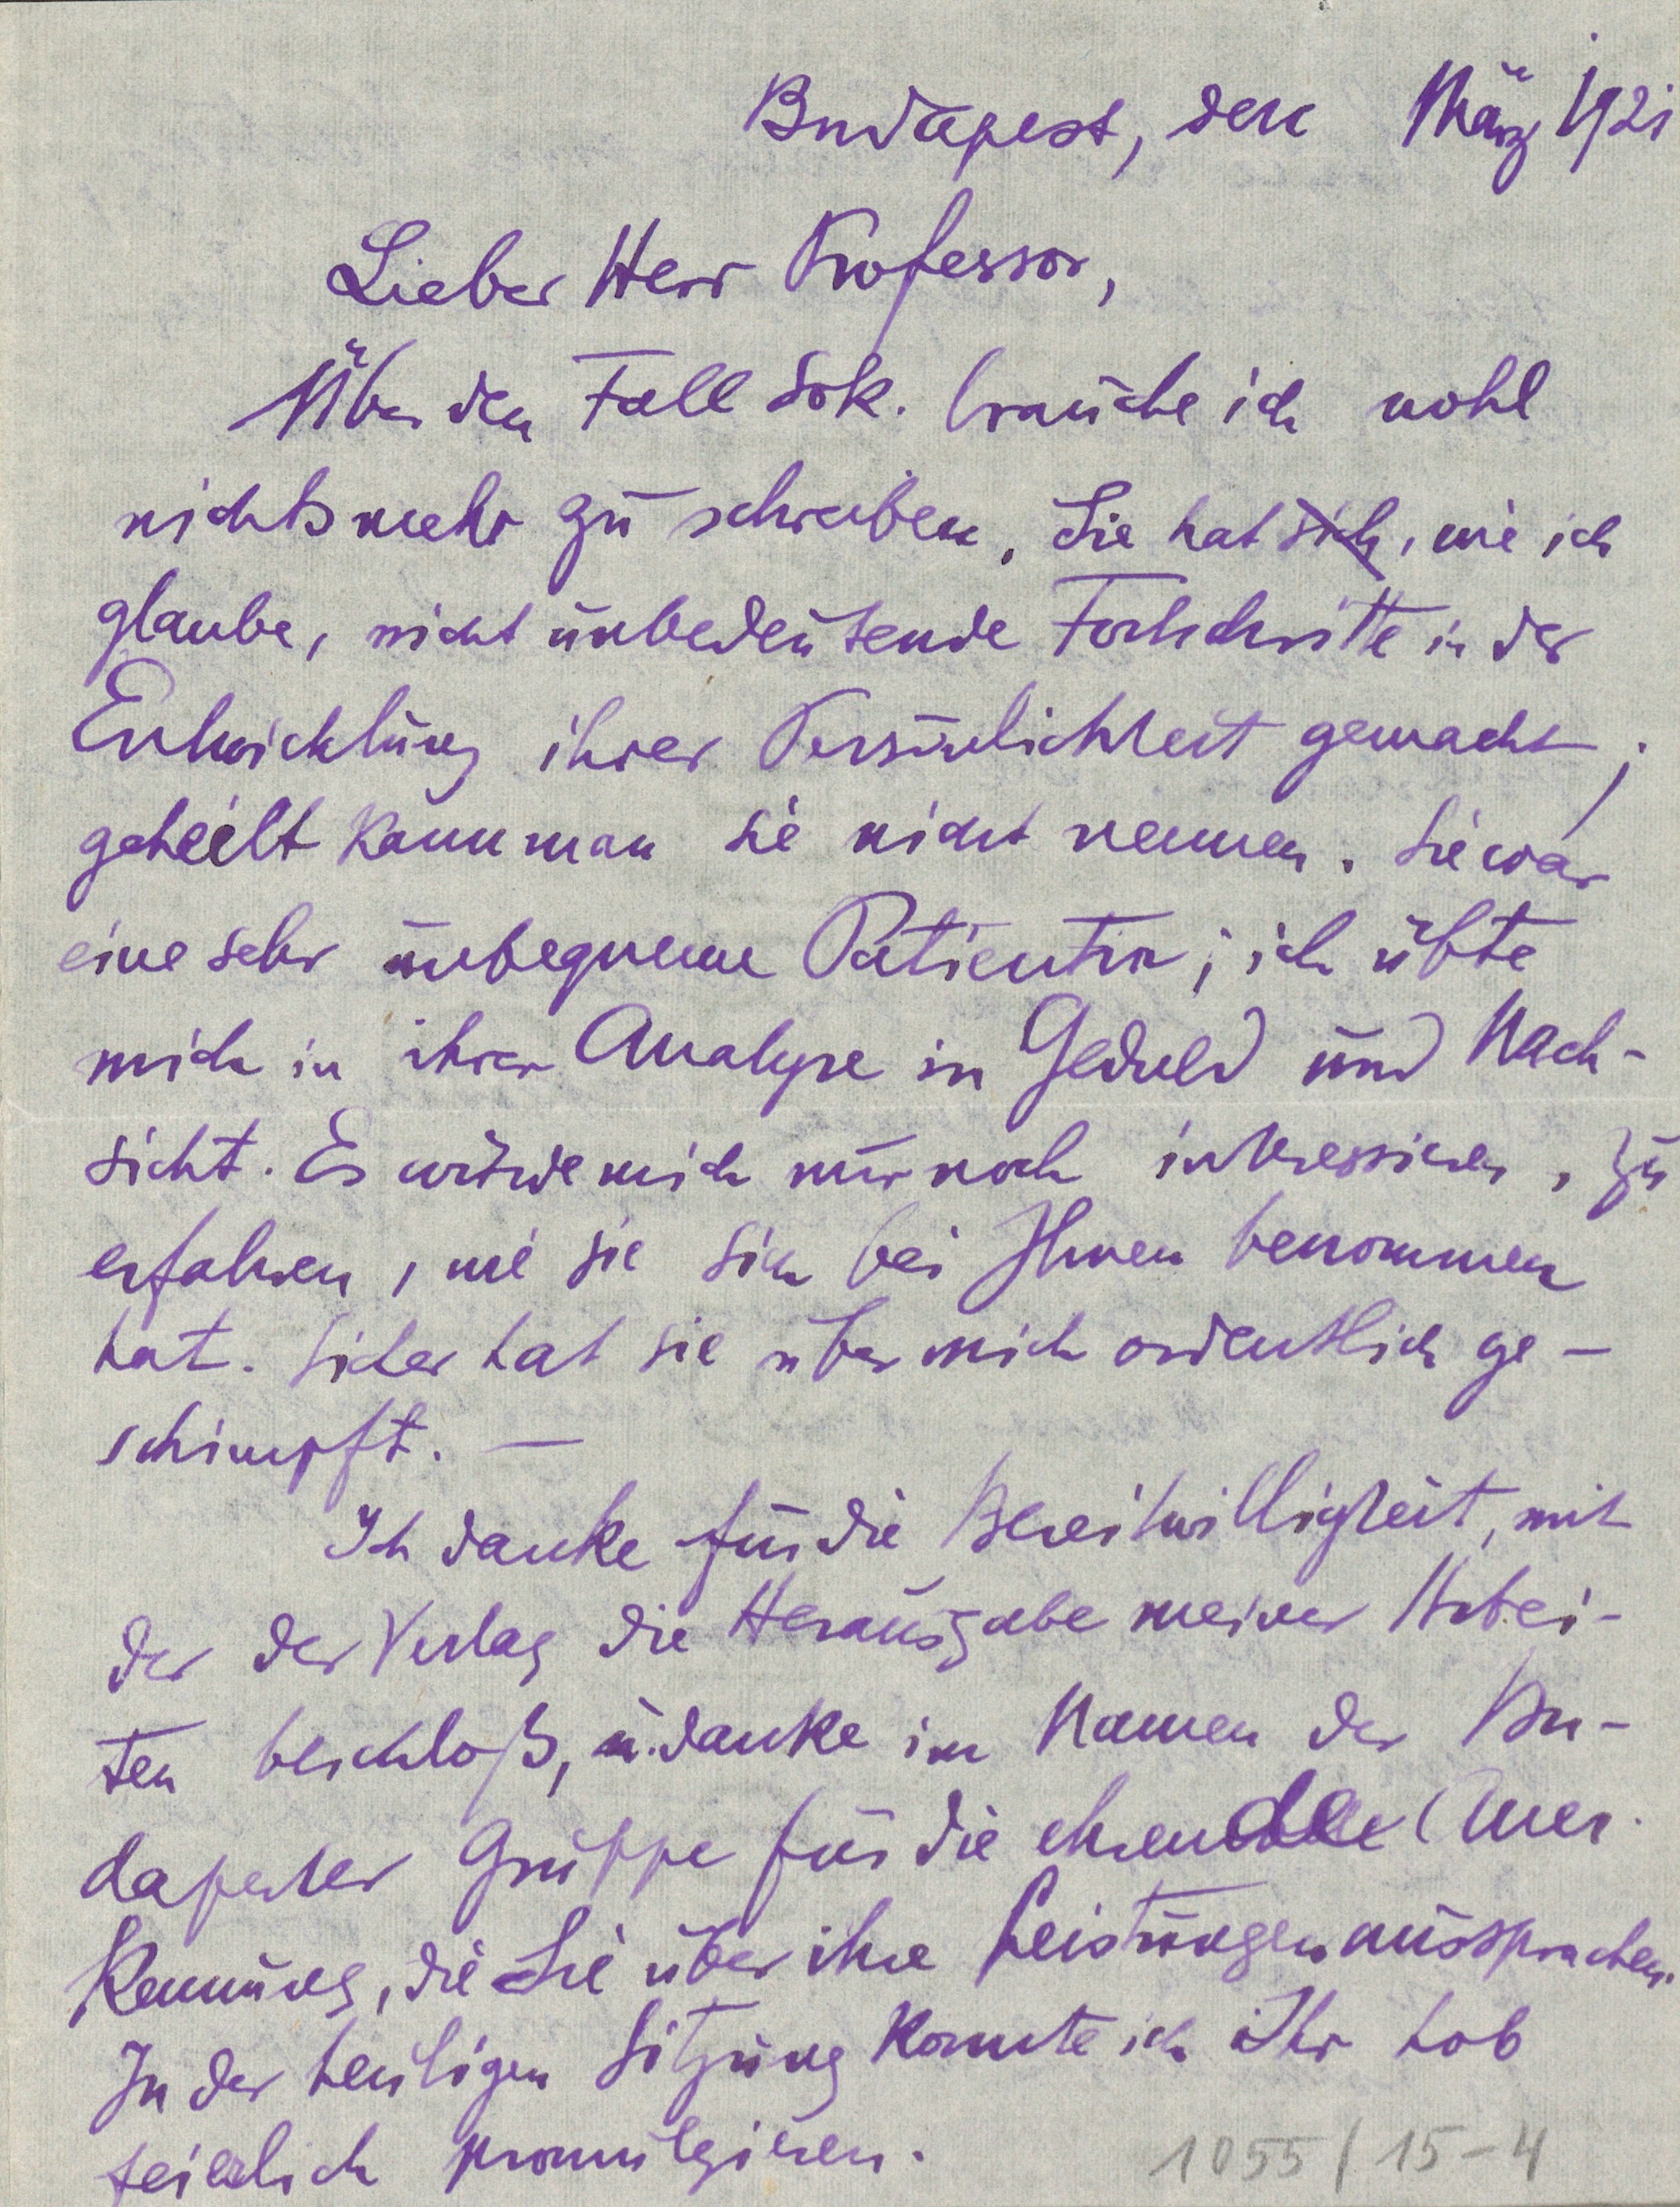 Budapest, den März 1921
Lieber Herr Professor,
Über den Fall Sok. brauche ich wohl
nichts mehr zu schreiben. Sie hat sich, wie ich
glaube, nicht unbedeutende Fortschritte in der
Entwicklung ihrer Persönlichkeit gemacht;
geheilt kann man sie nicht nennen. Sie war
eine sehr unbequeme Patientin; ich übte
mich in ihrer Analyse in Geduld und Nach-
sicht. Es würde mich nur noch interessieren, zu
erfahren, wie sie sich bei Ihnen benommen
hat. Sicher hat sie über mich ordentlich ge-
schimpft. —
Ich danke für die Bereitwilligkeit, mit
der der Verlag die Herausgabe meiner Arbei-
ten beschloß, u. danke im Namen der Bu-
dapester Gruppe für die ehrende Aner-
kennung, die Sie über ihre Leistungen aussprachen.
In der heutigen Sitzung konnte ich Ihr Lob
feierlich promulgieren.
1055/15-4